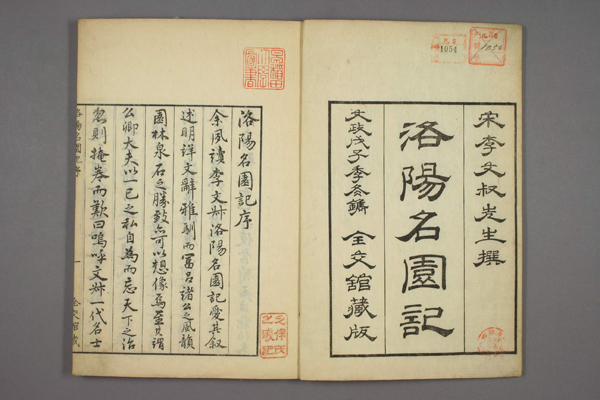 宋李文叔先生撰
洛陽名園記
文政戊子季冬鐫 全交館藏版
1054
洛陽名園記序
余夙讀李文叔洛陽名園記愛其叙
述明詳文辭雅馴而冨呂諸公之風韻
園林泉石之勝致亦可以想像焉至其謂
公卿大夫以一己之私自為而忘天下之治
忽則掩卷而歎曰嗚呼文叔一代名士
洛陽名園記序 一 全交館藏